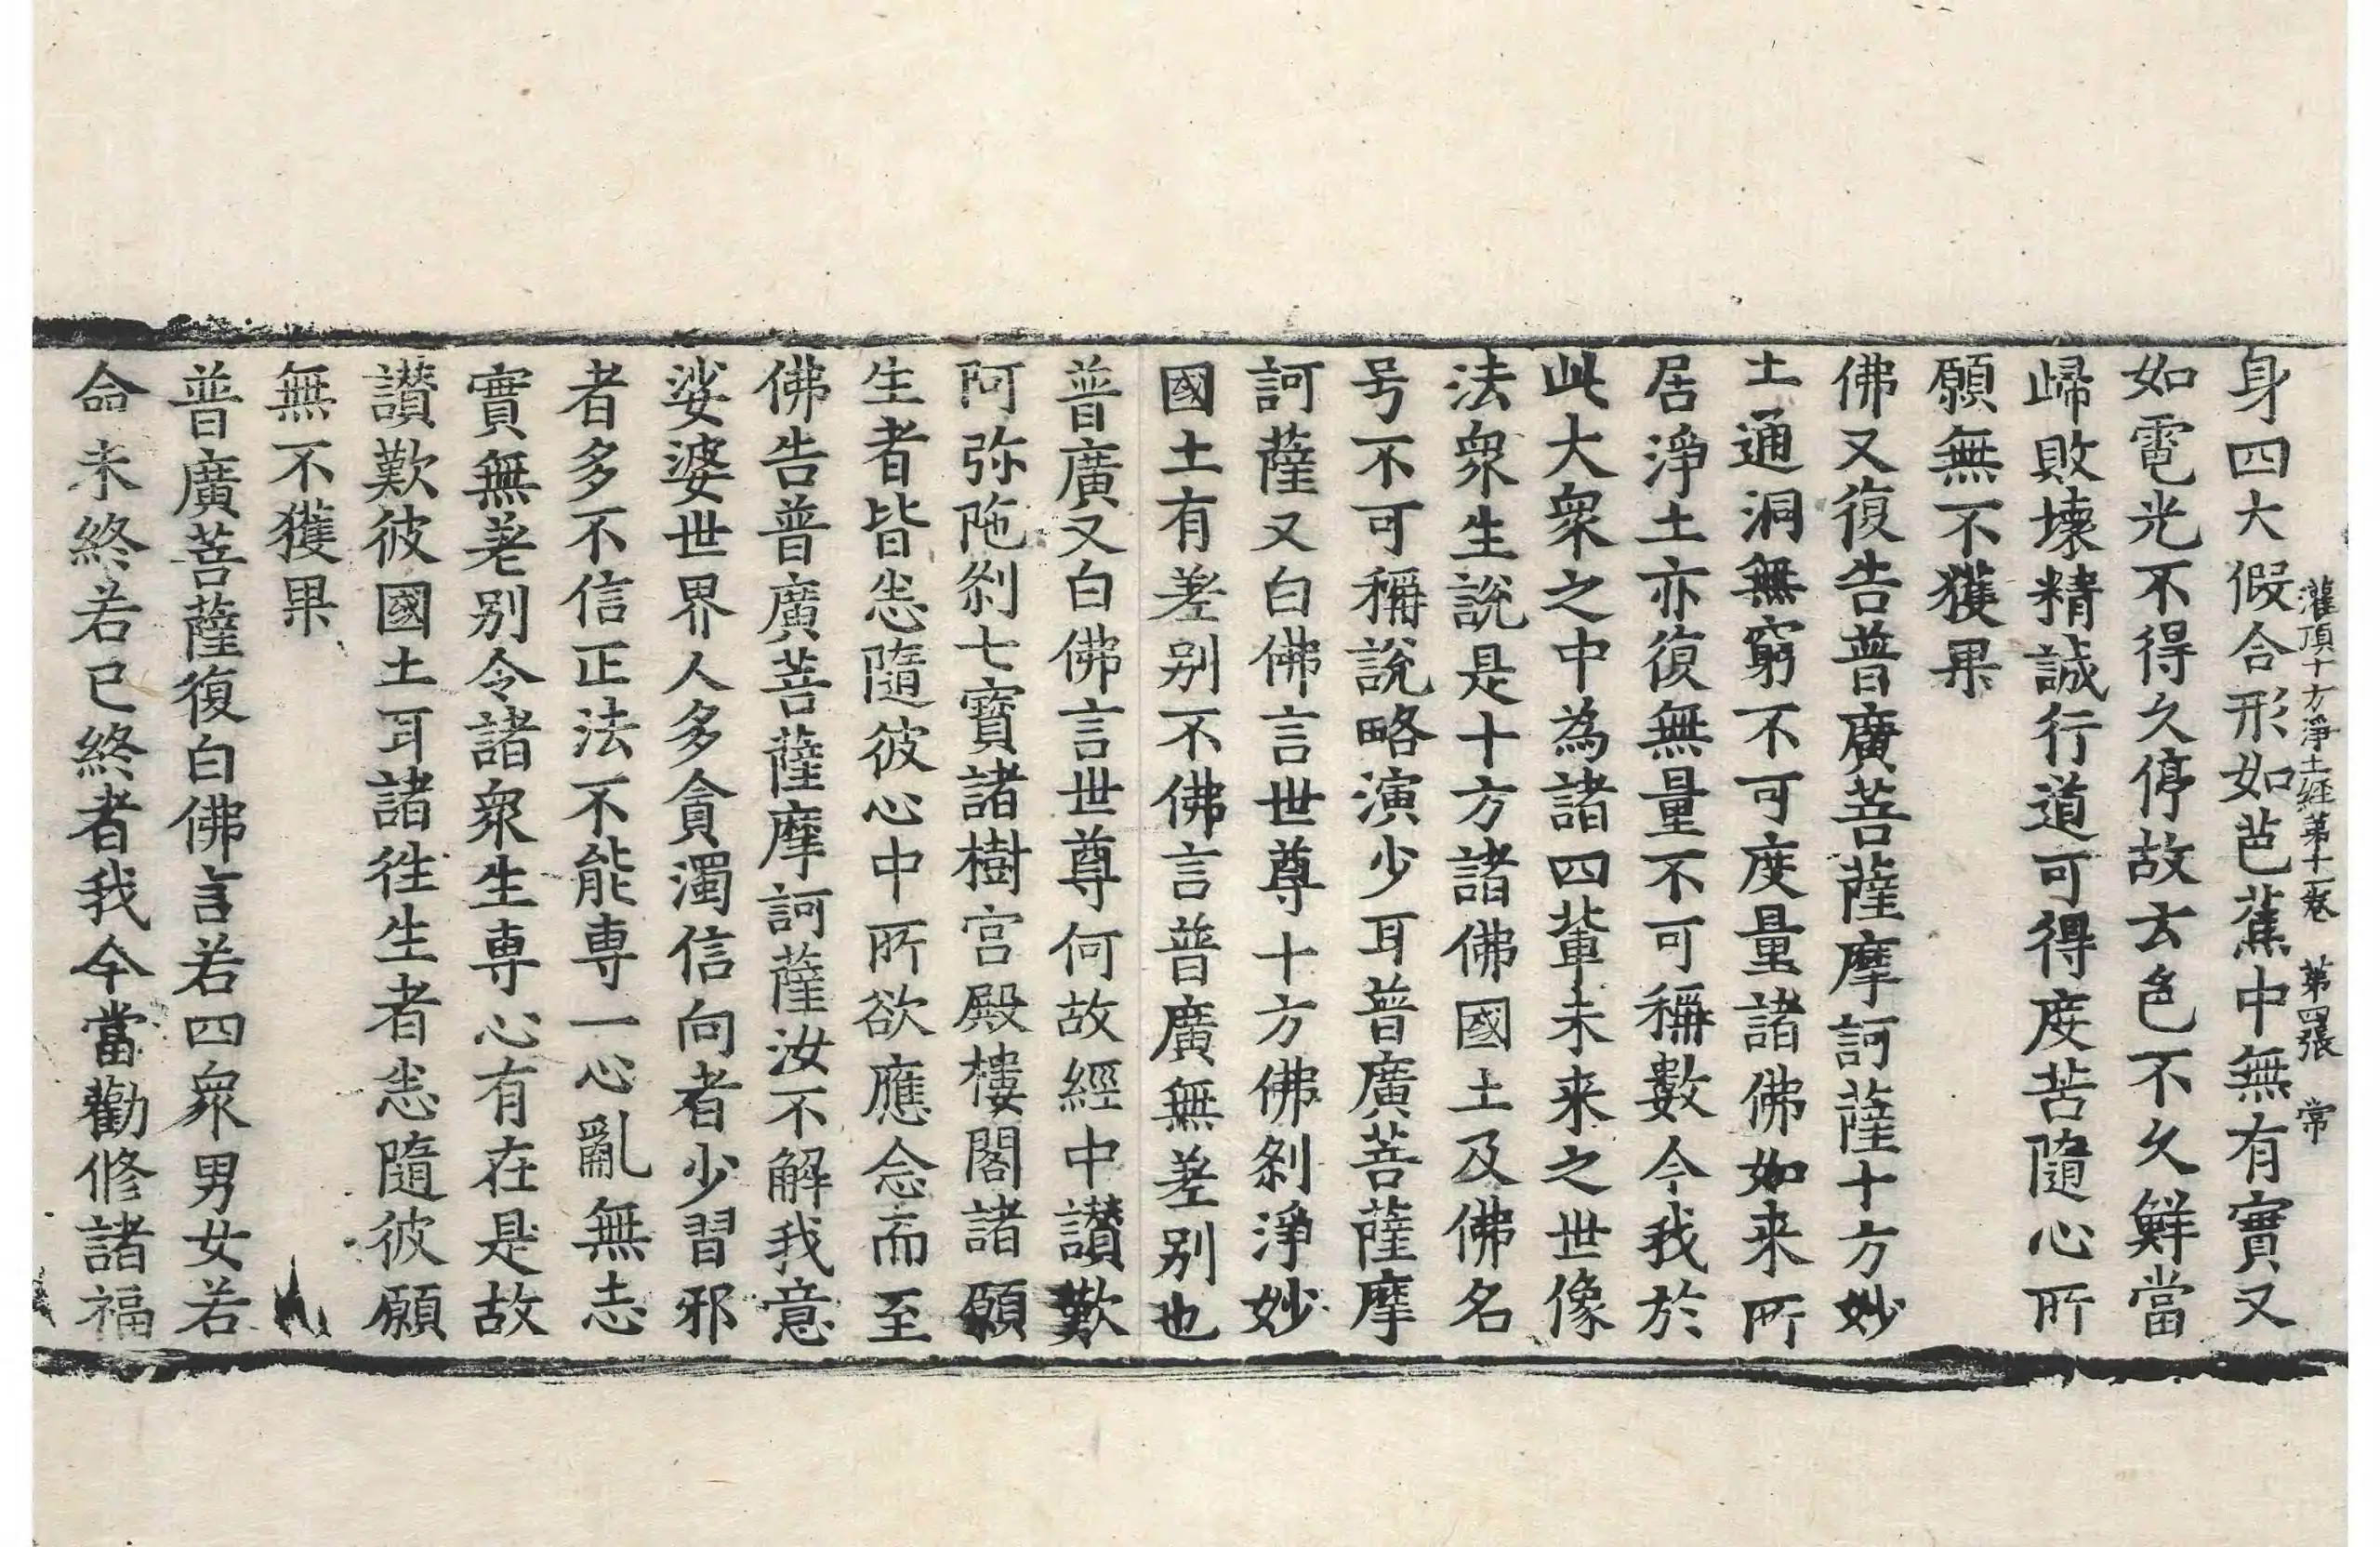 灌頂十方淨土經第十一卷　第四張　常
身四大假合形如芭蕉中無有實又
如電光不得久停故去色不久鮮當
歸敗壞精誠行道可得度苦隨心所
願無不獲果
佛又復告普廣菩薩摩訶薩十方妙
土通洞無窮不可度量諸佛如来所
居淨土亦復無量不可稱數今我於
此大衆之中為諸四輩未来之世像
法衆生說是十方諸佛國土及佛名
号不可稱說略演少耳普廣菩薩摩
訶薩又白佛言世尊十方佛剎淨妙
國土有差别不佛言普廣無差别也
普廣又白佛言世尊何故經中讃歎
阿弥陁剎七寳諸樹宫殿樓閣諸願
生者皆悉隨彼心中所欲應念而至
佛告普廣菩薩摩訶薩汝不解我意
娑婆世界人多貪濁信向者少習邪
者多不信正法不能専一心亂無志
實無差别令諸衆生専心有在是故
讃歎彼國土耳諸徃生者悉隨彼願
無不獲果
普廣菩薩復白佛言若四衆男女若
命未終若已終者我今當勸修諸福